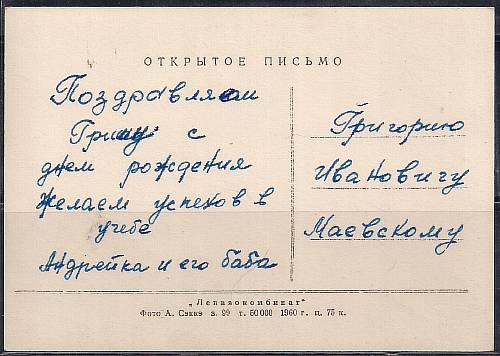 ОТКРЫТОЕ ПИСЬМО
Поздравляем
Гришу с
днем рождения
Желаем успехов в
учебе
Андрейка и его баба
Григорию
Ивановичу
Маевскому
„Лепазокомбинат“
Фото А. Сэккэ з. 99 т. 50000 1960 г. ц. 75 к.